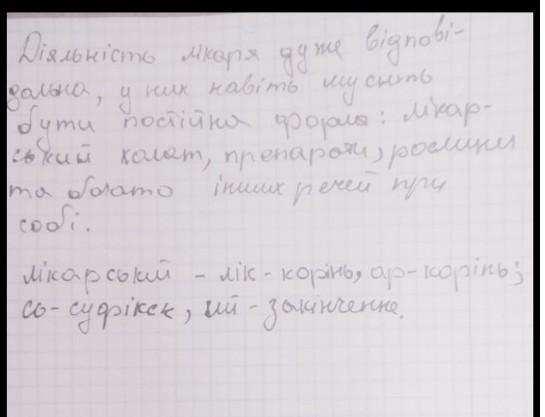 Діяльність лікаря дуже відпові-
дальна, у них навіть мусить
бути постійна форма: лікар-
ський халат, препарати, рослини
та багато інших речей при
собі.
лікарський - лік - корінь, ар - корінь;
сь - суфікск, ий - закінчення.